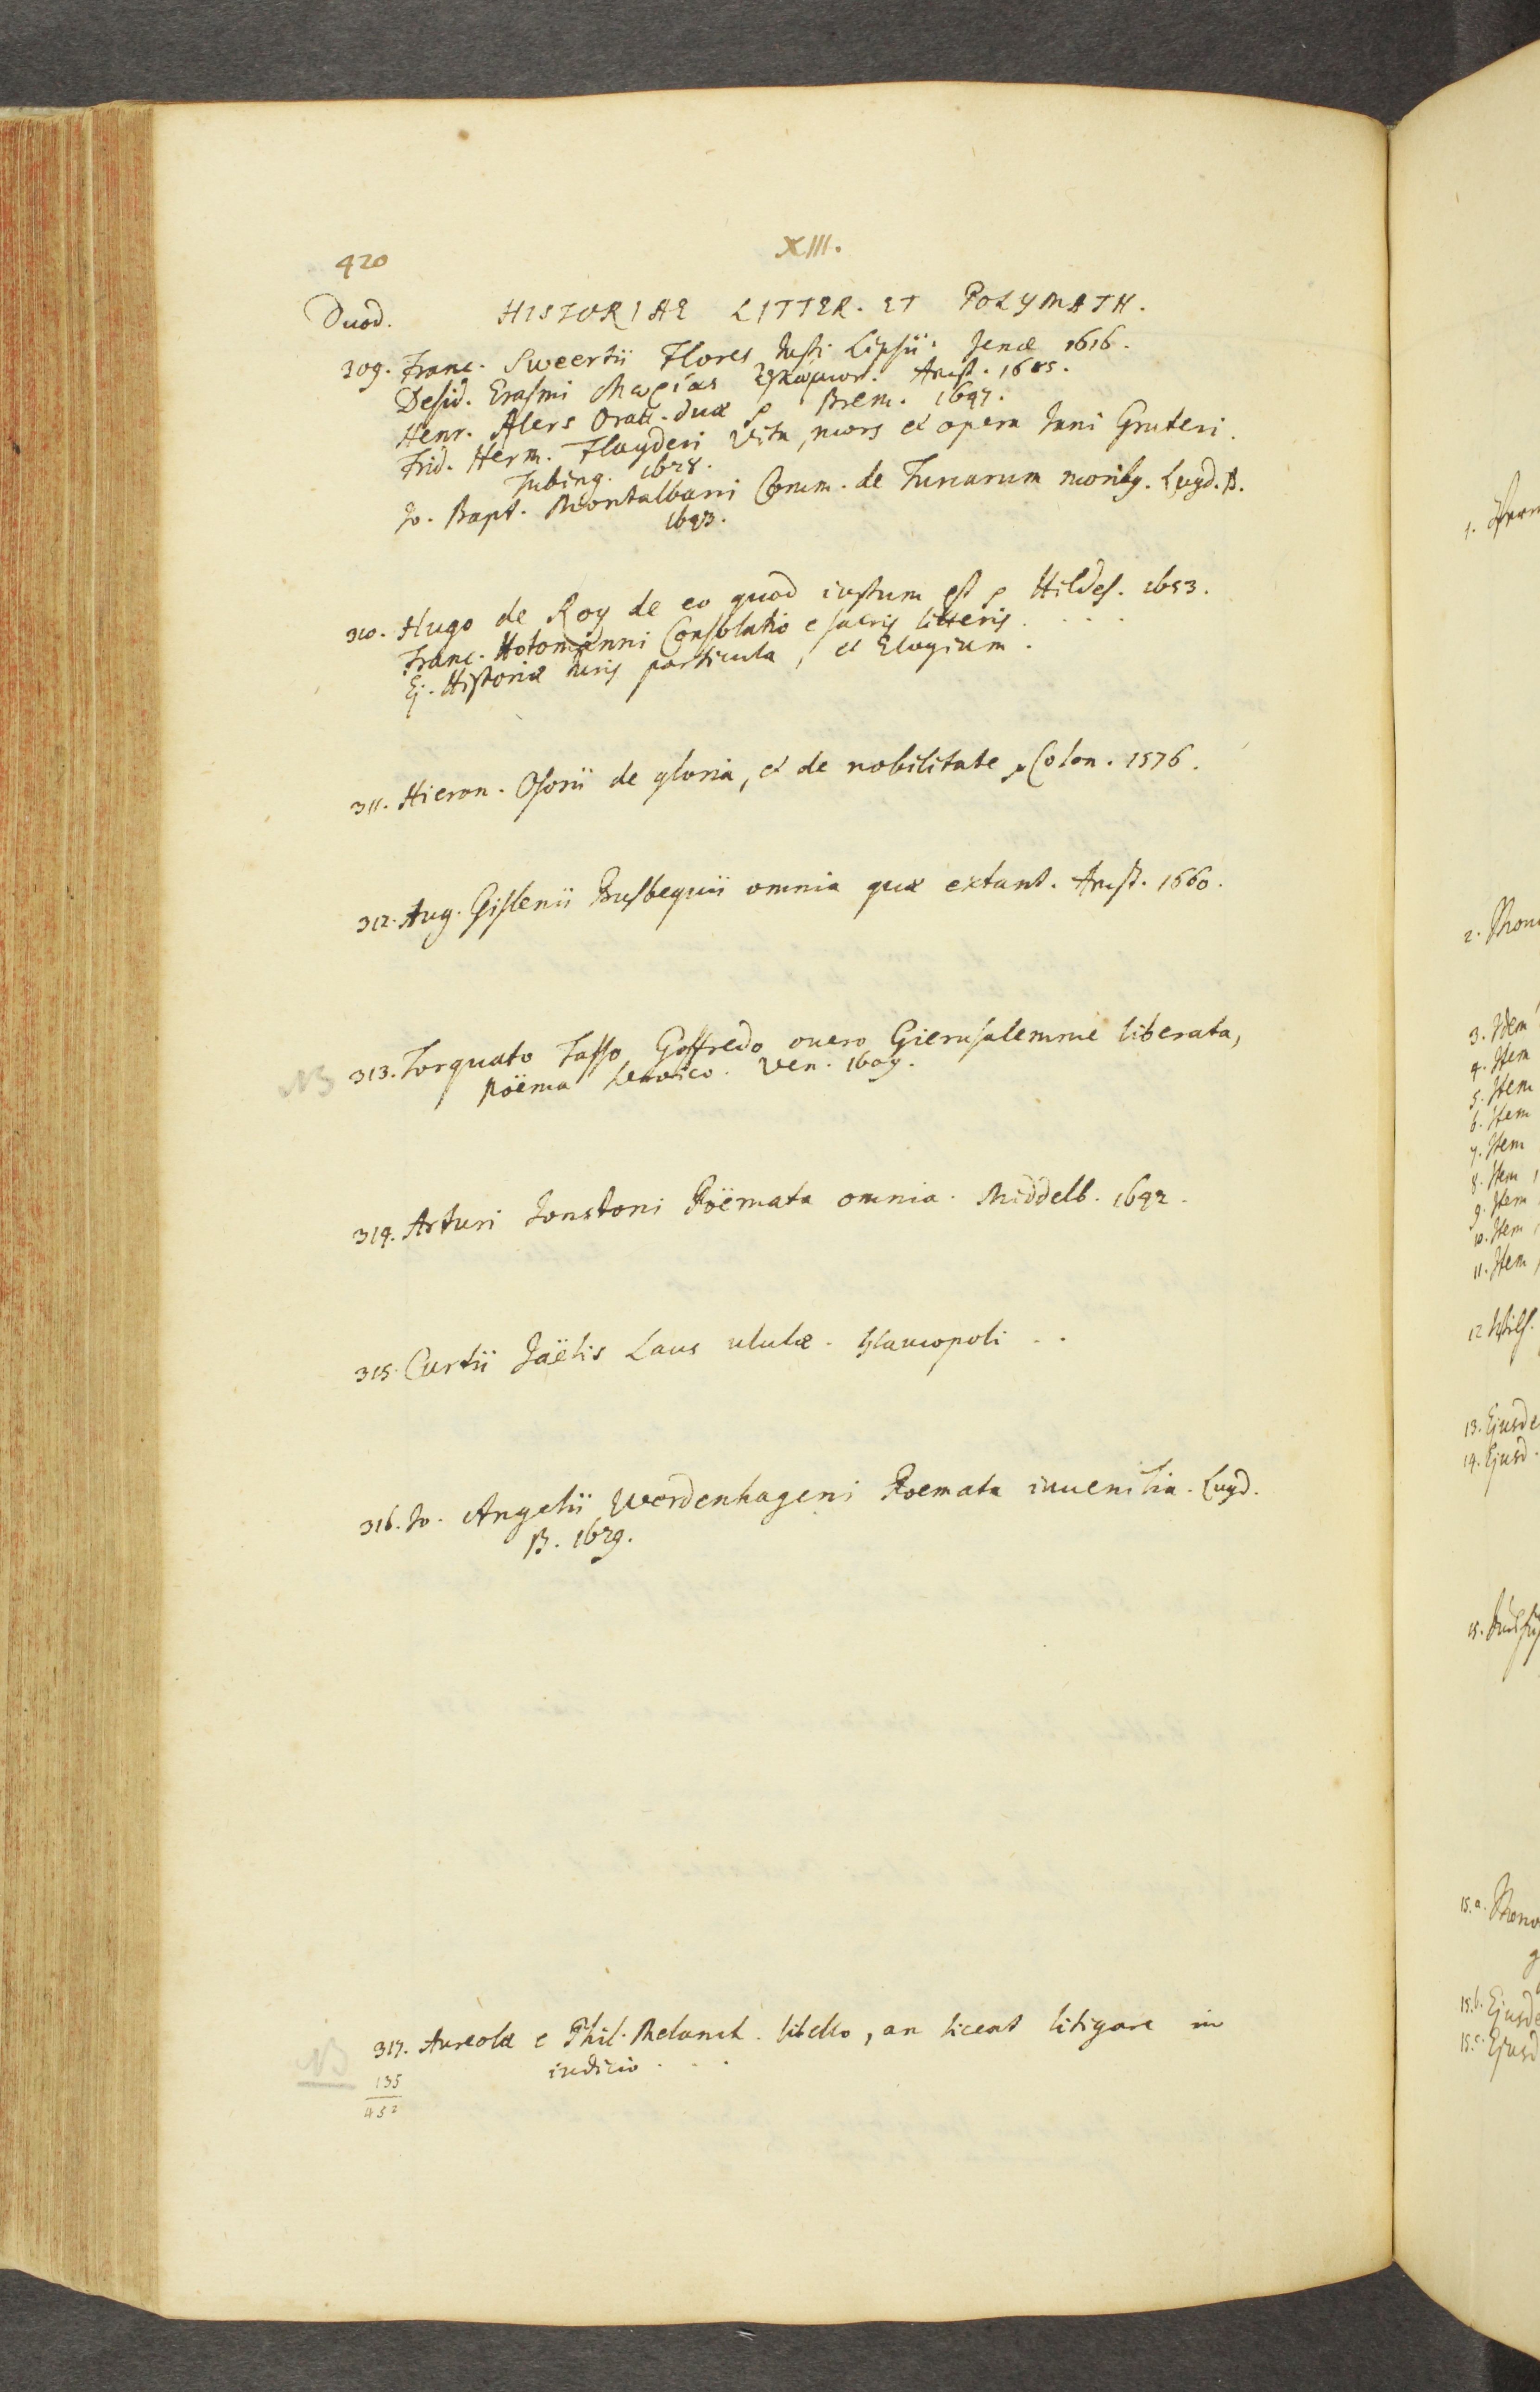 XIII.
420
Duod. HISTORIAE LITTER. ET POLYMATH.
309. Franc. Sweertii Flores Justi Lipsii. Jenæ 1616.
Desid. Erasmi Μωρίας ἐγκώμιον. Amst. 1685.
Henr. Alers Orat. duæ Brem. 1647.
Frid. Herm. Flayderi Vita, mors et opera Jani Gruteri.
Tubing. 1628.
Jo. Bapt. Montalbani Comm. de Turcarum moribus. Lugd. B.
1643.
310. Hugo de Roy de eo quod iustum est Hildes. 1653.
Franc. Hotomanni Consolatio e sacris litteris. . . .
Ej. Historiæ Juris particula, et Elogium.
311. Hieron. Osorii de gloria, et de nobilitate, Colon. 1576.
312. Aug. Gislenii Busbequii omnia quæ extant. Amst. 1660.
NB 313. Torquato Tasso, Goffredo, ouero Gierusalemme liberata,
Poëma heroico. Ven. 1609.
314. Arturi Jonstoni Poëmata omnia. Middelb. 1642.
315. Curtii Jaëlis Laus ululæ. Glaucopoli . .
316. Jo. Angelii Werdenhageni Poemata iuuenilia. Lugd.
B. 1629.
NB 317. Aureolæ e Phil. Melanch. libello, an liceat litigare in
iudicio . . .
135
452
1.
2.
3. Idem
4. Item
5. Item
6. Item
7. Item
8. Item
9. Item
10. Item
11. Item
12
13. Ejusde
14. Ejusd.
15.
15.a.
15.b. Ejusde
15.c. Ejusd